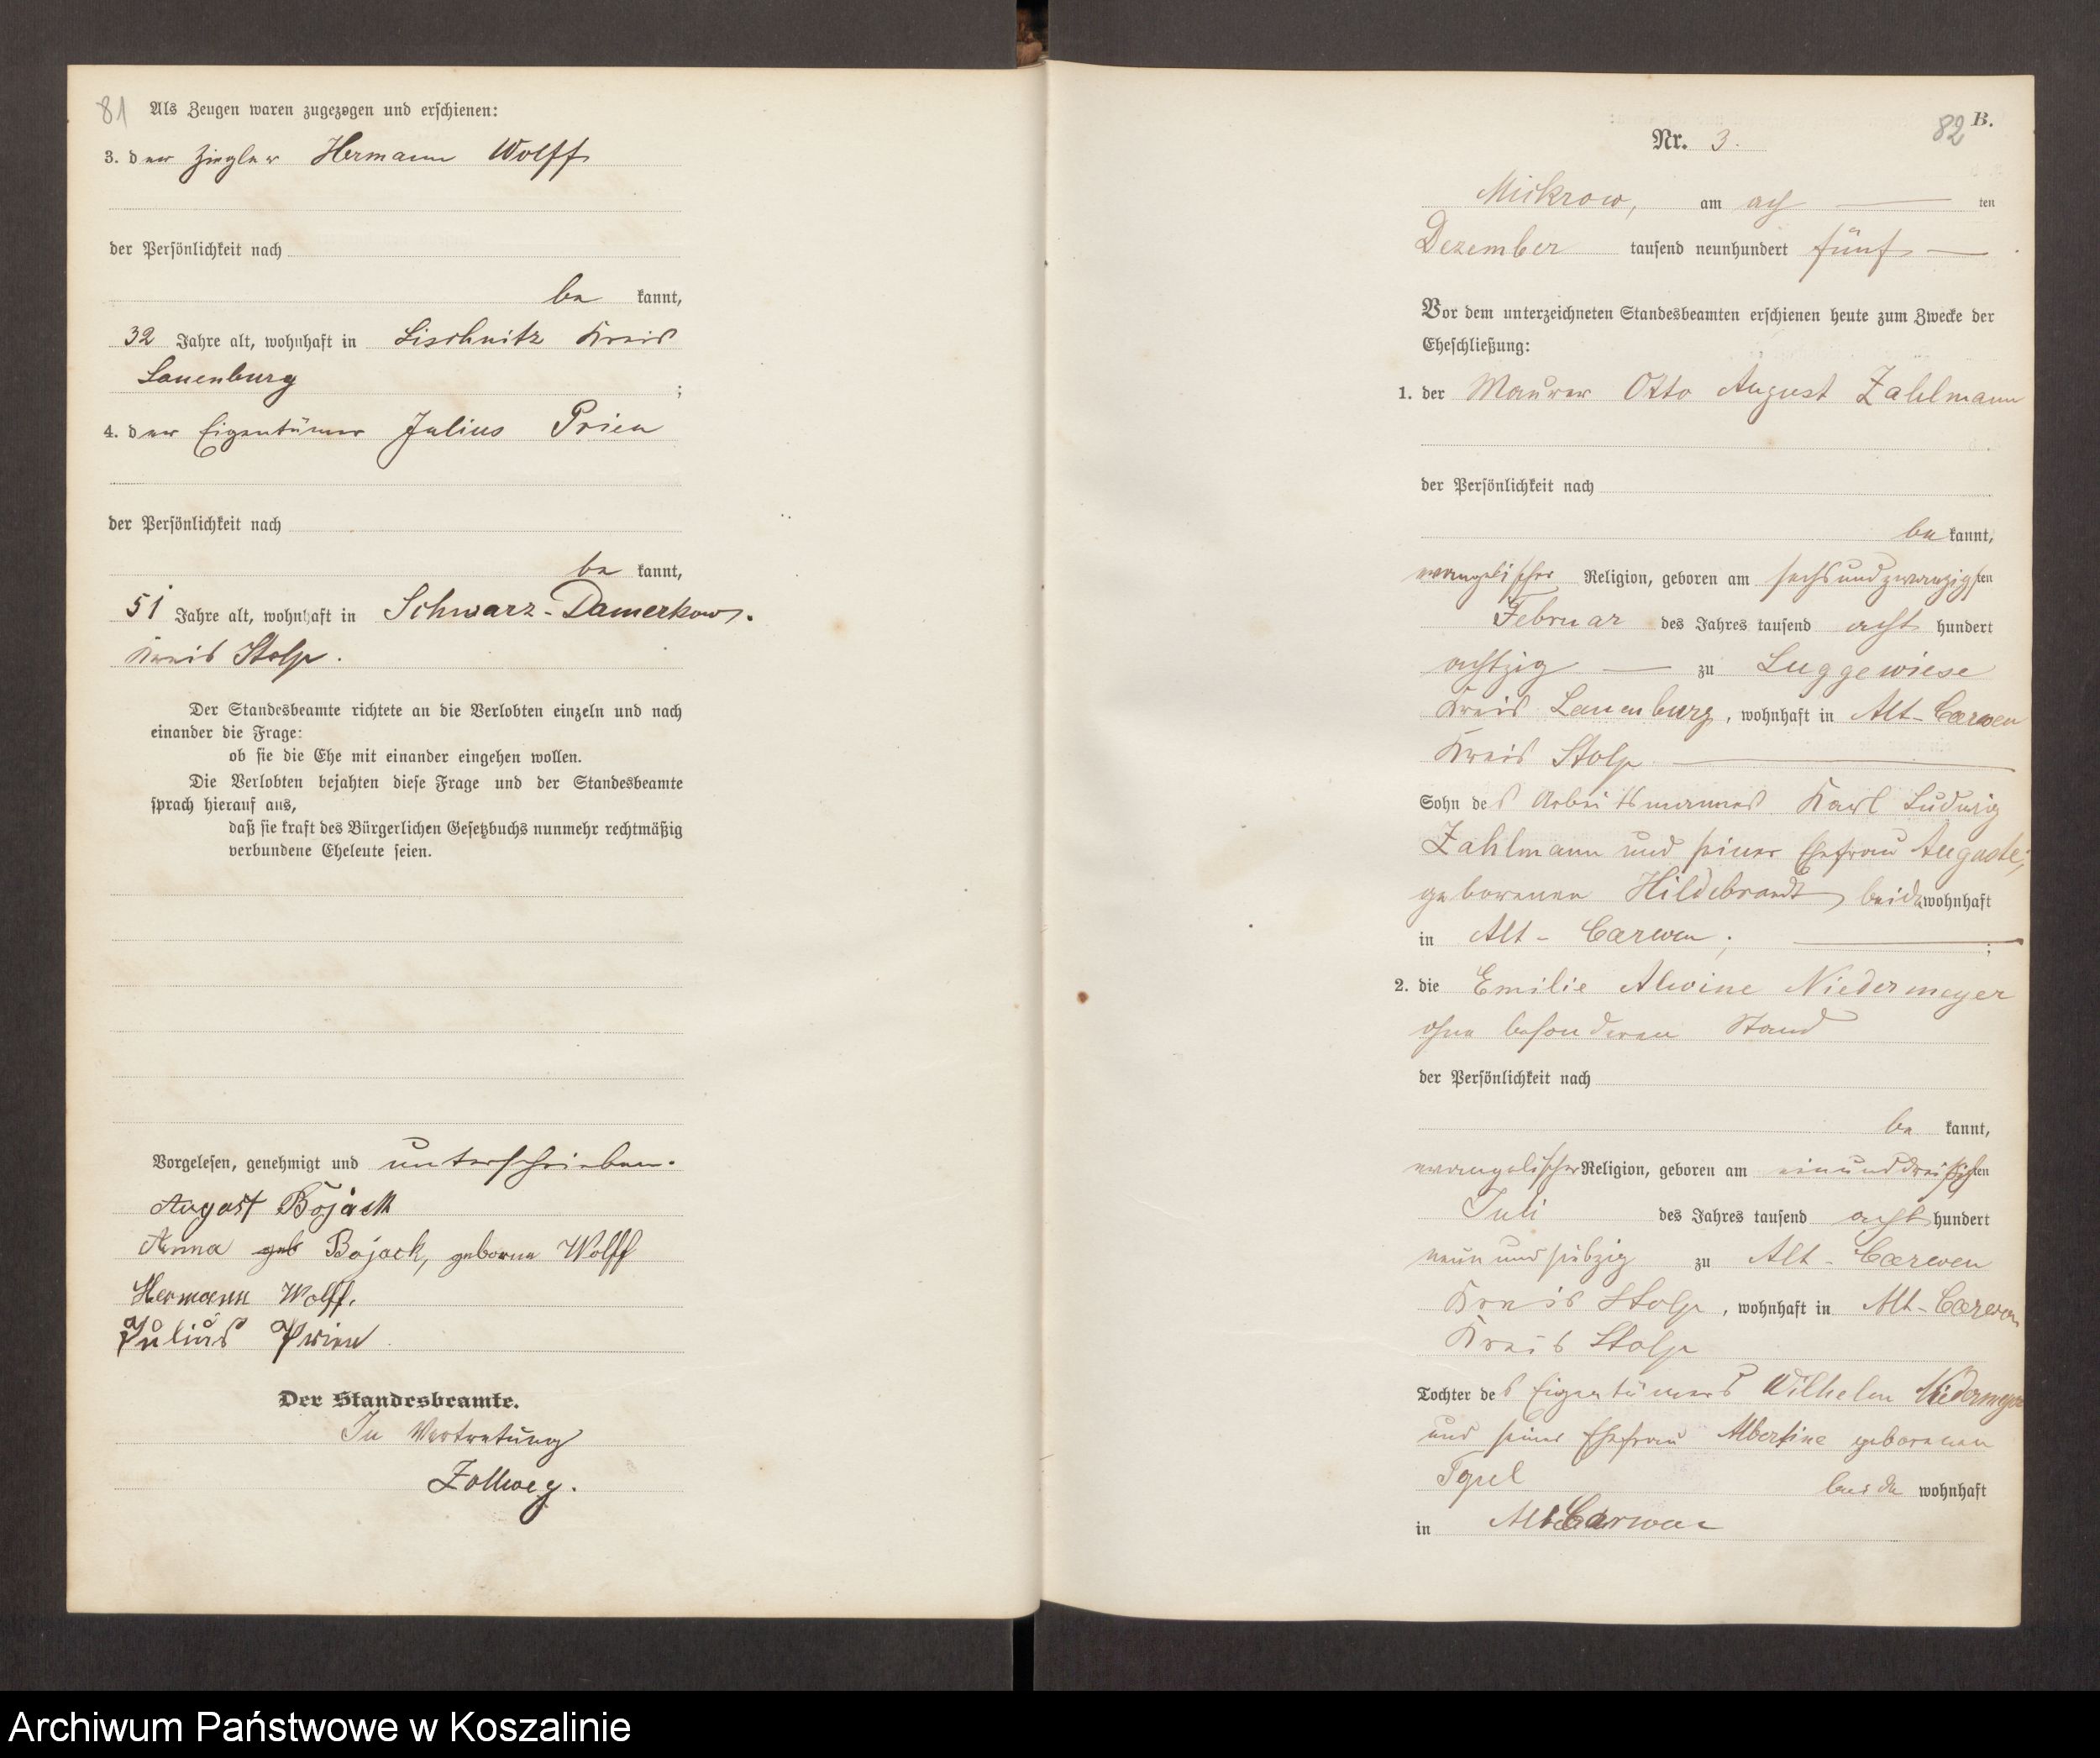 81 Als Zeugen waren zugezogen und erschienen:
3. der Ziegler Hermann Wolff
der Persönlichkeit nach
be kannt,
32 Jahre alt, wohnhaft in Lischnitz Kreis
Lauenburg ;
4. der Eigentümer Julius Prien
der Persönlichkeit nach
be kannt,
51 Jahre alt, wohnhaft in Schwarz-Damerkow.
Kreis Stolp.
Der Standesbeamte richtete an die Verlobten einzeln und nach
einander die Frage:
ob sie die Ehe mit einander eingehen wollen.
Die Verlobten bejahten diese Frage und der Standesbeamte
sprach hierauf aus,
daß sie kraft des Bürgerlichen Gesetzbuchs nunmehr rechtmäßig
verbundene Eheleute seien.
Vorgelesen, genehmigt und unterschrieben.
August Bojack
Anna geb Bojack, geborne Wolff
Hermann Wolff.
Julius Prien
Der Standesbeamte.
In Vertretung
Zollweg.
82 B.
Nr. 3.
Mickrow, am ach — ten
Dezember tausend neunhundert fünf —
Vor dem unterzeichneten Standesbeamten erschienen heute zum Zwecke der
Eheschließung:
1. der Maurer Otto August Zahlmann
der Persönlichkeit nach
be kannt,
evangelischer Religion, geboren am sechsundzwanzigsten
Februar des Jahres tausend acht hundert
achtzig — zu Luggewiese
Kreis Lauenburg, wohnhaft in Alt-Carwen
Kreis Stolp —
Sohn des Arbeitsmannes Karl Ludwig
Zahlmann und seiner Ehefrau Auguste,
geborenen Hildebrandt, beide wohnhaft
in Alt-Carwen; — ;
2. die Emilie Alwine Niedermeyer
ohne besonderen Stand
der Persönlichkeit nach
be kannt,
evangelischer Religion, geboren am einunddreißigsten
Juli des Jahres tausend acht hundert
neunundsiebzig zu Alt-Carwen
Kreis Stolp, wohnhaft in Alt-Carwen
Kreis Stolp
Tochter des Eigentümers Wilhelm Niedermeyer
und seiner Ehefrau Albertine geborenen
beide wohnhaft
in Alt Carwen
Archiwum Państwowe w Koszalinie